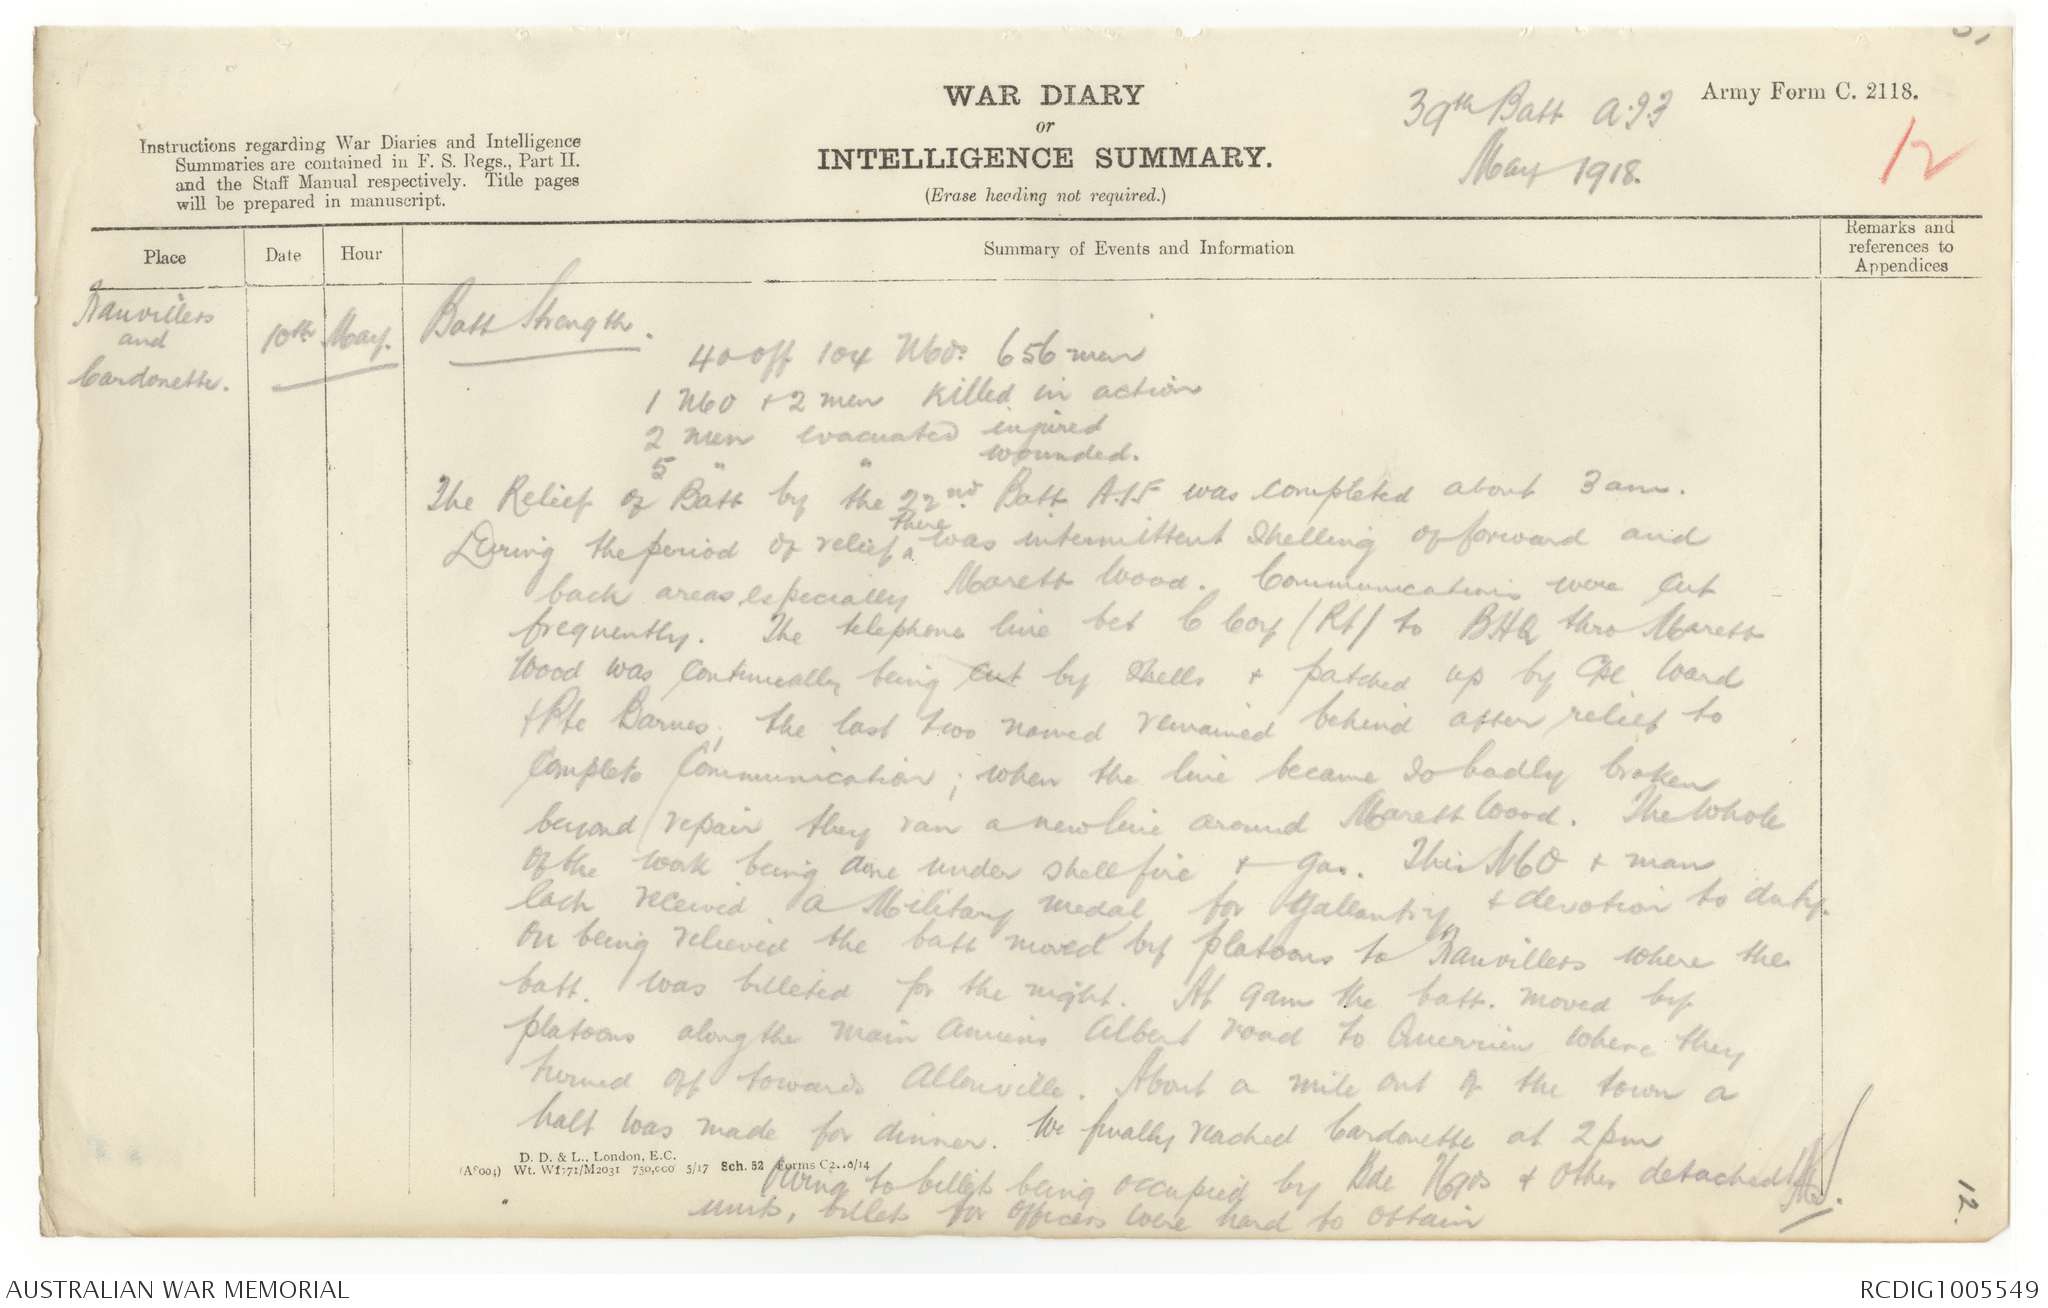 WAR DIARY
or
INTELLIGENCE SUMMARY.
(Erase heading not required.)
39th Batt A.I.F
May 1918.
Army Form C. 2118.
12
Instructions regarding War Diaries and Intelligence
Summaries are contained in F. S. Regs., Part II.
and the Staff Manual respectively. Title pages
will be prepared in manuscript.
Place
Date
Hour
Summary of Events and Information
Remarks and
references to
Appendices
and
Cardonette.
10th May.
Batt Strength.
40 off 104 NCOs 656 men
1 NCO + 2 men killed in action
2 men evacuated injured
5 " " wounded.
The Relief of Batt by the 22nd Batt A.I.F was completed about 3 am.
During the period of relief there was intermittent shelling of forward and
back areas especially Marett Wood. Communications were cut
frequently. The telephone line bet C Coy (Rt) to BHQ thro Marett
Wood was continually being cut by shells + patched up by Cpl Ward
+ Pte Barnes, the last two named remained behind after relief to
complete communication; when the line became so badly broken
beyond repair they ran a new line around Marett Wood. The whole
of the work being done under shell fire + gas. This NCO + man
each received a Military medal for gallantry + devotion to duty.
On being relieved the batt moved by platoons to where the
batt. was billeted for the night. At 9 am the batt. moved by
platoons along the main Amiens Albert road to Querrieu where they
turned off towards Allonville. About a mile out of the town a
halt was made for dinner. We finally reached Cardonette at 2 pm
Owing to billets being occupied by Bde Hqrs + other detached
units, billets for officers were hard to obtain
D. D. & L., London, E.C.
(A8004) Wt. W1771/M2031 750,000 5/17 Sch. 52 Forms C2118/14
12.
AUSTRALIAN WAR MEMORIAL
RCDIG1005549